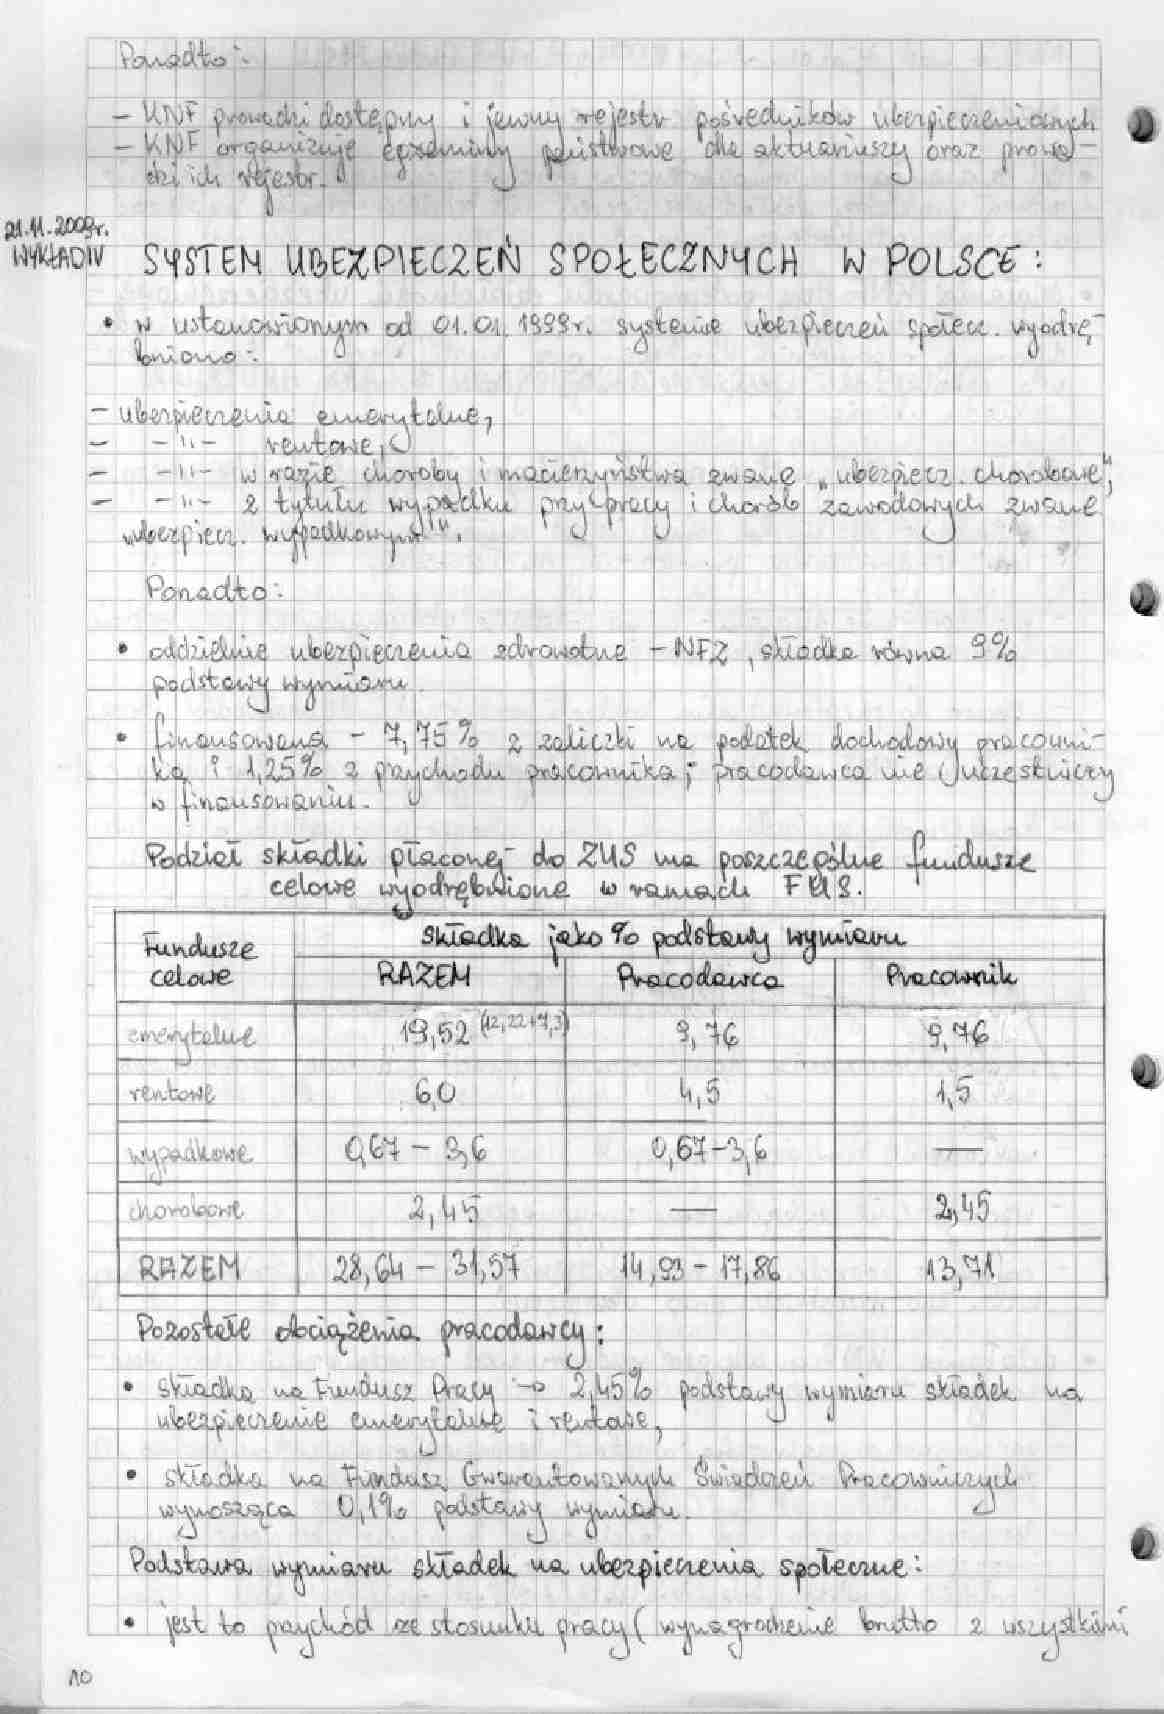 Ponadto:
- KNF prowadzi dostępny i jawny rejestr pośredników ubezpieczeniowych
- KNF organizuje egzaminy państwowe dla aktuariuszy oraz prowa-
dzi ich rejestr.
21.11.2009r.
WYKŁAD IV
SYSTEM UBEZPIECZEŃ SPOŁECZNYCH W POLSCE:
• w ustanowionym od 01.01.1999r. systemie ubezpieczeń społecz. wyodrę-
bniono:
- ubezpieczenia emerytalne,
- -"- rentowe,
- -"- w razie choroby i macierzyństwa zwane „ubezpiecz. chorobowe",
- -"- z tytułu wypadku przy pracy i chorób zawodowych zwane
„ubezpiecz. wypadkowym".
Ponadto:
• oddzielnie ubezpieczenia zdrowotne - NFZ, składka równa 9%
podstawy wymiaru.
• finansowana - 7,75% z zaliczki na podatek dochodowy pracowni-
ka i 1,25% z przychodu pracownika; pracodawca nie uczestniczy
w finansowaniu.
Podział składki płaconej do ZUS na poszczególne fundusze
celowe wyodrębnione w ramach FUS.
Fundusze celowe | składka jako % podstawy wymiaru
RAZEM | Pracodawca | Pracownik
emerytalne | 19,52 (12,22+7,3) | 9,76 | 9,76
rentowe | 6,0 | 4,5 | 1,5
wypadkowe | 0,67 - 3,6 | 0,67-3,6 | —
chorobowe | 2,45 | — | 2,45
RAZEM | 28,64 - 31,57 | 14,93 - 17,86 | 13,71
Pozostałe obciążenia pracodawcy:
• składka na Fundusz Pracy → 2,45% podstawy wymiaru składek na
ubezpieczenie emerytalne i rentowe,
• składka na Fundusz Gwarantowanych Świadczeń Pracowniczych
wynosząca 0,1% podstawy wymiaru.
Podstawa wymiaru składek na ubezpieczenia społeczne:
• jest to przychód ze stosunku pracy (wynagrodzenie brutto z wszystkimi
10